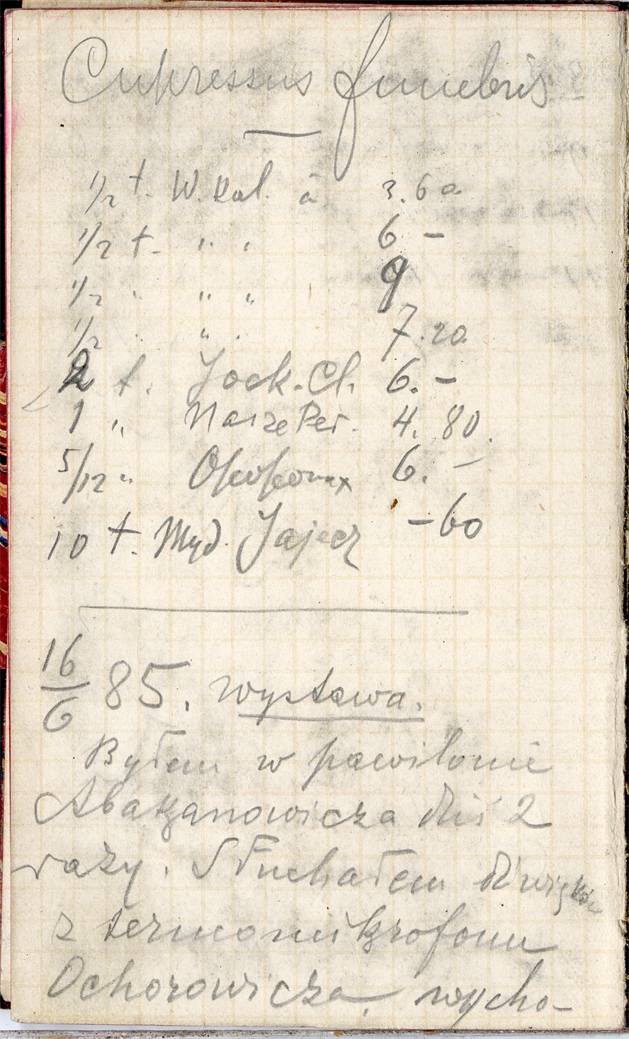 Cupressus funebris
1/2 t. W. Kol. à 3.60
1/2 t. " " 6 –
1/2 " " " 9
1/2 " " 7.20
2 t. Jock. Cl. 6. –
1 " Nasze Per. 4. 80.
5/12 " Opoponax 6. –
10 t. Myd. Jajecz – 60
16/6 85. wystawa.
Byłem w pawilonie
Abakanowicza dziś 2
razy. Słuchałem dźwięków
z termomikrofonu
Ochorowicza, wycho-